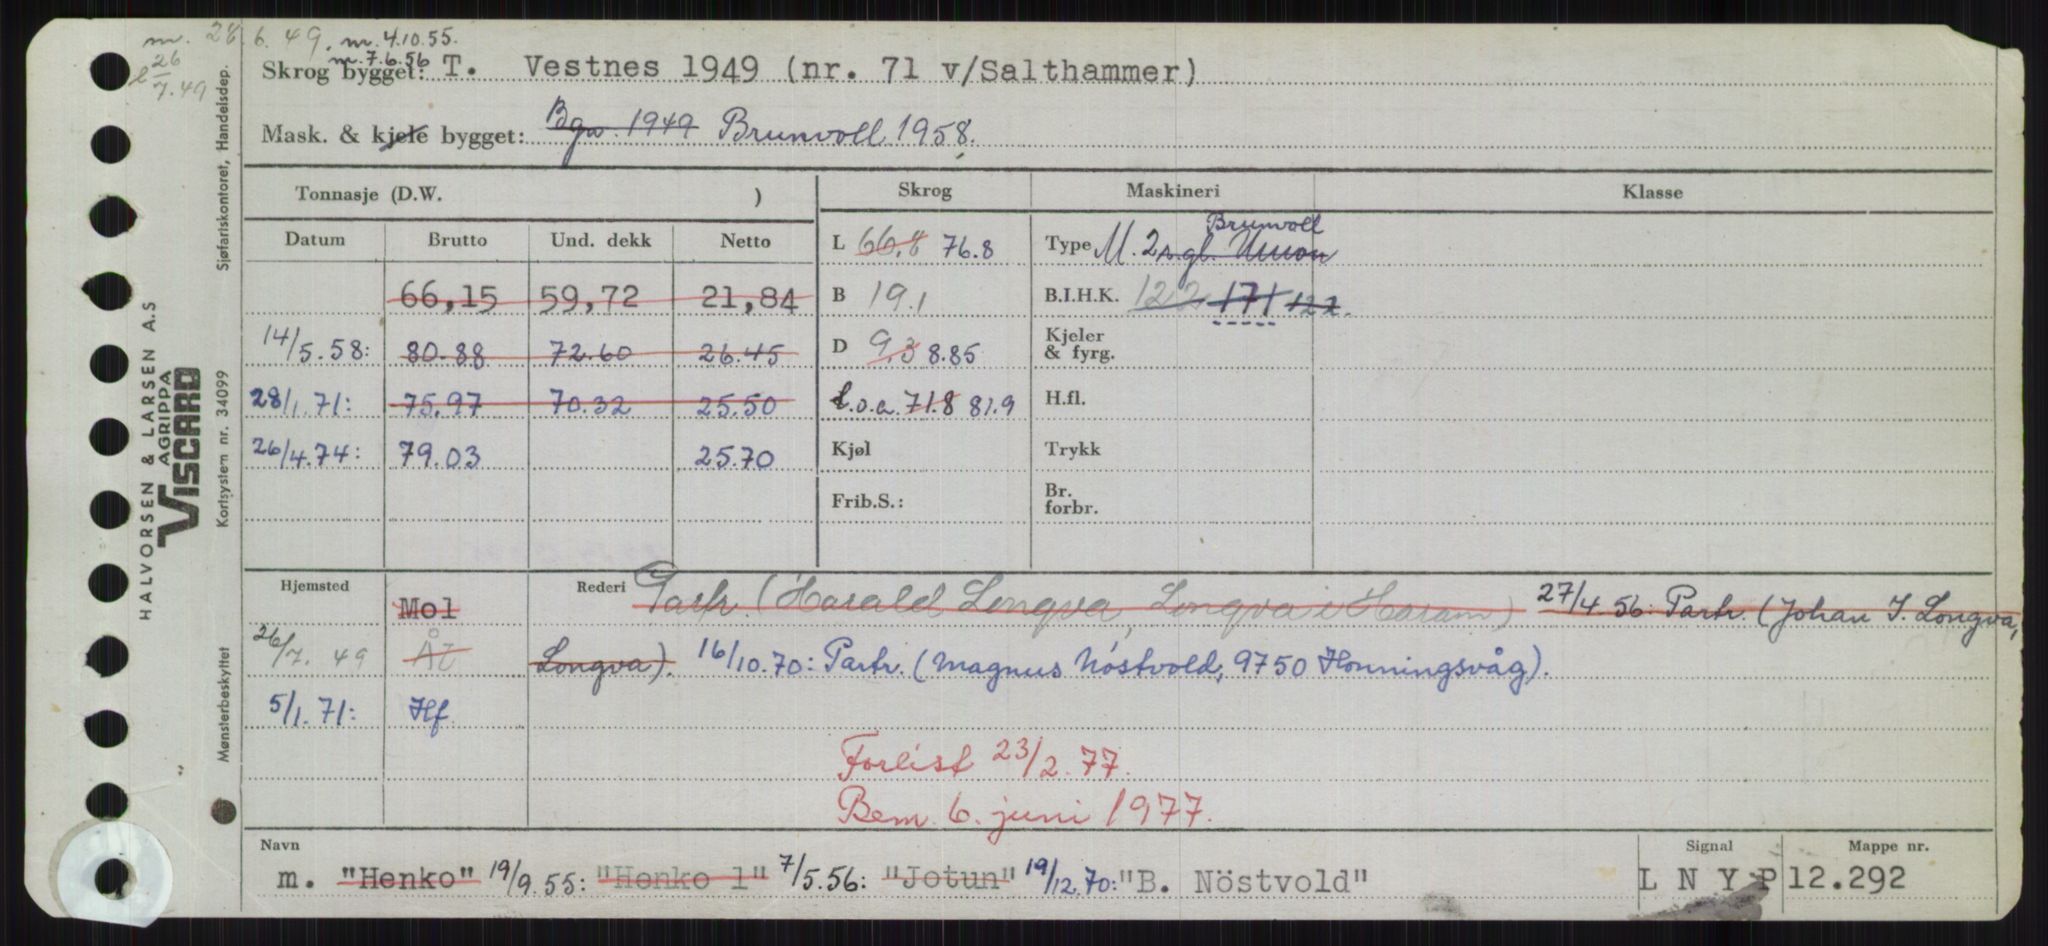 m. 28.6.49, m. 4.10.55.
m. 7.6.56
26/7.49
Skrog bygget: T. Vestnes 1949 (nr. 71 v/Salthammer)
Mask. & kjele bygget: Bgw. 1949 Brunvoll 1958.
Tonnasje (D.W. )
Skrog Maskineri Klasse
Datum Brutto Und. dekk Netto
L 66,8 76.8 Type M. 2 s. gl. Union Brunvoll
66,15 59,72 21,84
B 19.1 B.I.H.K. 122 171 122.
14/5.58: 80.88 72.60 26.45
D 9.3 8.85 Kjeler & fyrg.
28/1.71: 75.97 70.32 25.50
L.o.a. 71.8 81.9 H.fl.
26/4.74: 79.03 25.70
Kjøl Trykk
Frib.S.: Br. forbr.
Hjemsted Mol Rederi Partr. (Harald Longva, Longva i Haram) 27/4.56: Partr. (Johan I. Longva,
26/7. 49 ÅL Longva). 16/10.70: Partr. (Magnus Nöstvold, 9750 Honningsvåg).
5/1.71: Hf
Forlist 23/2.77.
Bem. 6. juni 1977.
Navn Signal Mappe nr.
m. "Henko" 19/9.55: "Henko 1" 7/5.56: "Jotun" 19/12.70: "B. Nöstvold" L N Y P 12.292
HALVORSEN & LARSEN A.S
AGRIPPA
VISCARD
Mønsterbeskyttet Kortsystem nr. 34099 Sjøfartskontoret, Handelsdep.